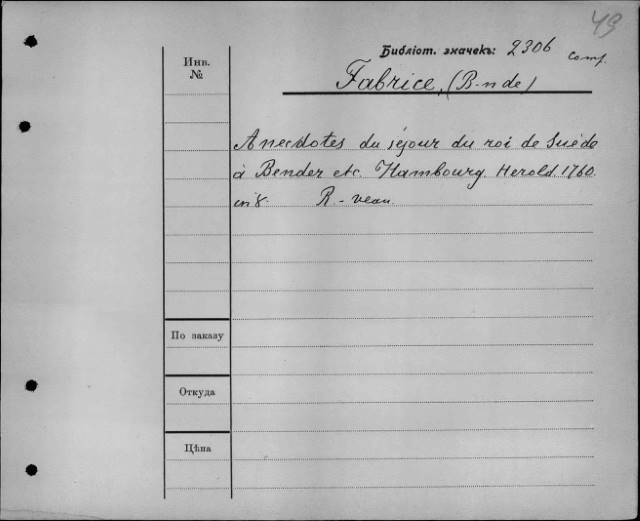 49
Библіот. значекъ: 2306
comp.
Инв.
№
Fabrice, (B-n de)
Anecdotes du séjour du roi de Suède
à Bender etc. Hambourg. Herold. 1760.
in 8. R - veau.
По заказу
Откуда
Цѣна